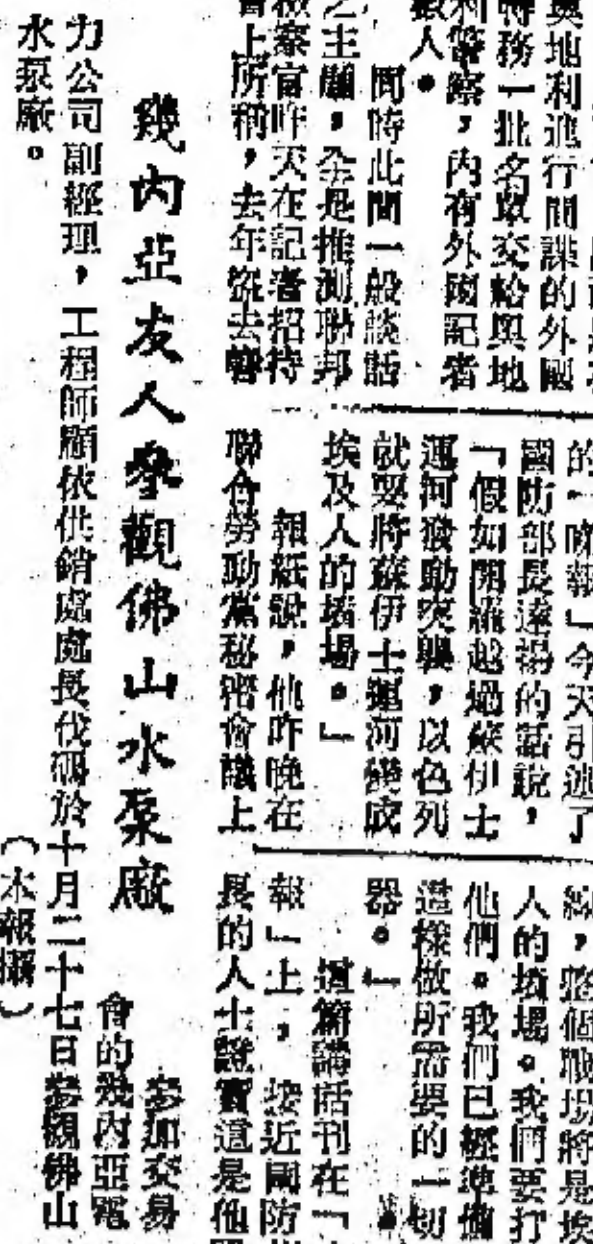 奧地利進行間諜的外國
特務一批名單交給奧地
利警察，內有外國記者
數人。
同時此間一般談話
之主題，全是推測聯邦
檢察官昨天在記者招待
會上所稱，去年盜去
的一晚報」今天引述了
國防部長達揚的話說，
「假如開羅越過蘇伊士
運河發動突襲，以色列
就要將蘇伊士運河變成
埃及人的墳場。」
報紙說，他昨晚在
聯合勞動黨秘密會議上
，整個戰場將是埃
人的墳場。我們要打
他們。我們已經準備
這樣做所需要的一切
器。」
這篇講話刊在「
報」上，接近國防
長的人士證實這是他
幾內亞友人參觀佛山水泵廠
參加交易
會的幾內亞電
力公司副經理，工程師顧依供銷處處長伐瑪於十月二十七日參觀佛山
水泵廠。
（本報攝）